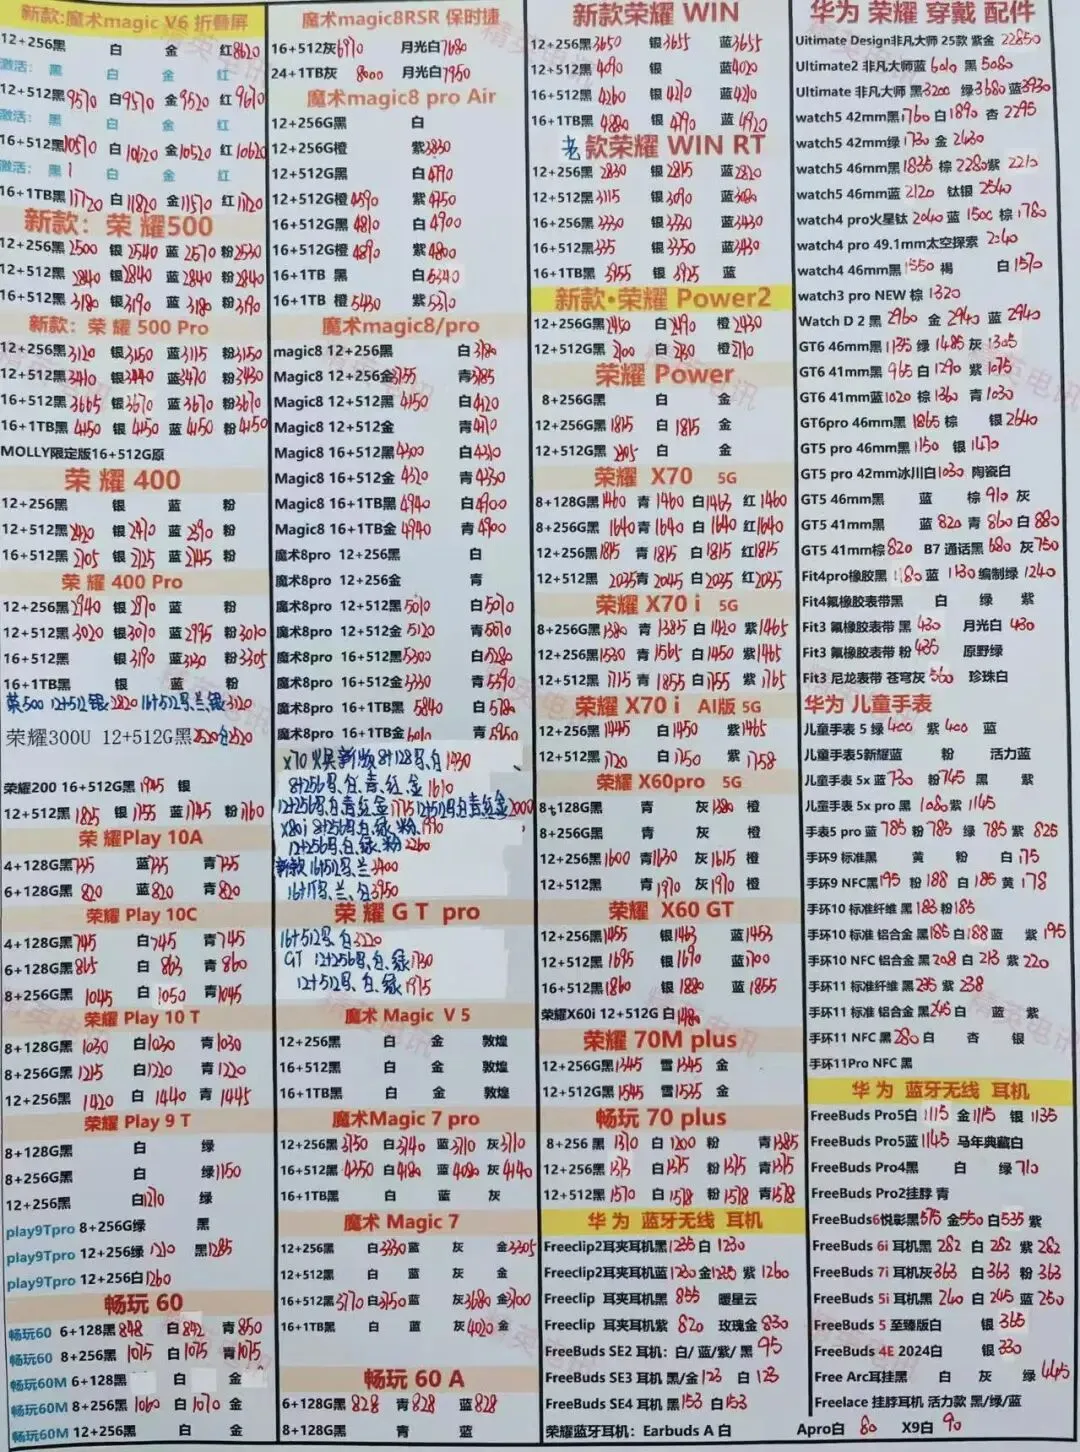 新款:魔术magic V6 折叠屏
12+256黑 白 金 红8620
激活: 黑 白 金 红
12+512黑9570 白9570 金9520 红9670
激活: 黑 白 金 红
16+512黑10570 白10620 金10520 红10620
激活: 黑 白 金 红
16+1TB黑11720 白11820 金11570 红11720
新款: 荣 耀500
12+256黑2500 银2540 蓝2570 粉2530
12+512黑2840 银2840 蓝2840 粉2840
16+512黑3180 银3190 蓝3180 粉3190
新款: 荣 耀 500 Pro
12+256黑3120 银3150 蓝3115 粉3150
12+512黑3410 银3440 蓝3470 粉3430
16+512黑3665 银3670 蓝3670 粉3670
16+1TB黑4150 银4150 蓝4150 粉4150
MOLLY限定版16+512G原
荣 耀 400
12+256黑 银 蓝 粉
12+512黑2420 银2470 蓝2590 粉
16+512黑2705 银2725 蓝2745 粉
荣 耀 400 Pro
12+256黑2940 银2970 蓝 粉
12+512黑3020 银3070 蓝2995 粉3010
16+512黑 银3190 蓝3230 粉3305
16+1TB黑 银 蓝 粉
荣500 12+512银2820 16+512号,兰,银3120
荣耀300U 12+512G黑2520白2520
荣耀200 16+512G黑1905 银
12+512黑1825 银1755 蓝1745 粉1760
荣 耀Play 10A
4+128G黑735 蓝735 青735
6+128G黑820 蓝820 青820
荣耀 Play 10C
4+128G黑745 白745 青745
6+128G黑865 白863 青860
8+256G黑1045 白1050 青1045
荣耀 Play 10 T
8+128G黑1030 白1030 青1030
8+256G黑1215 白1220 青1220
12+256黑1420 白1440 青1445
荣耀 Play 9 T
8+128G黑 白 绿
8+256G黑 白 绿1150
12+256黑 白1270 绿
play9Tpro 8+256G绿 黑
play9Tpro 12+256绿1210 黑1285
play9Tpro 12+256白1260
畅玩 60
畅玩60 6+128黑848 白842 青850
畅玩60 8+256黑1075 白1075 青1075
畅玩60M 6+128黑 白 金
畅玩60M 8+256黑1060 白1070 金
畅玩60M 12+256黑 白 金
魔术magic8RSR 保时捷
16+512灰6970 月光白7680
24+1TB灰 8000 月光白7950
魔术magic8 pro Air
12+256G黑 白
12+256G橙 紫3830
12+512G黑 白4790
12+512G橙4590 紫4750
16+512G黑4810 白4900
16+512G橙4890 紫4800
16+1TB 黑 白5340
16+1TB 橙5430 紫5370
魔术magic8/pro
magic8 12+256黑 白3780
Magic8 12+256金3755 青3785
Magic8 12+512黑4150 白4120
Magic8 12+512金 青4170
Magic8 16+512黑4300 白4310
Magic8 16+512金4320 青4330
Magic8 16+1TB黑4940 白4900
Magic8 16+1TB金4940 青4900
魔术8pro 12+256黑 白
魔术8pro 12+256金 青
魔术8pro 12+512黑5010 白5070
魔术8pro 12+512金5120 青5070
魔术8pro 16+512黑5300 白5280
魔术8pro 16+512金5330 青5390
魔术8pro 16+1TB黑5840 白5780
魔术8pro 16+1TB金6010 青5950
x70 焕新版 8+128号,白1430
8+256号,白,青,红,金1610
12+256号白青红金1775 12+512号,白青红金2000
X80i 8+256号,白,绿,粉1970
12+256号,白,绿,粉2260
新款 16+512号,兰3400
16+1T号,兰,白3950
荣 耀 G T pro
16+512号,白3220
GT 12+256号,白,绿1730
12+512号,白,绿1975
魔术 Magic V 5
12+256黑 白 金 敦煌
16+512黑 白 金 敦煌
16+1TB黑 白 金 敦煌
魔术Magic 7 pro
12+256黑3750 白3740 蓝3710 灰3710
16+512黑4350 白4180 蓝4080 灰4140
16+1TB黑 白 蓝 灰
魔术 Magic 7
12+256黑 白3330 蓝 灰 金3305
12+512黑 白 蓝 灰 金
16+512黑3770 白3750 蓝 灰3680 金3700
16+1TB黑 白 蓝 灰4020 金
畅玩 60 A
6+128G黑828 青828 蓝828
8+128G黑 青 蓝
新款荣耀 WIN
12+256黑3650 银3655 蓝3655
12+512黑4090 银 蓝4020
16+512黑4260 银4210 蓝4210
16+1TB黑4880 银4790 蓝4920
老款荣耀 WIN RT
12+256黑2830 银2815 蓝2820
12+512黑3115 银3090 蓝3080
16+256黑3330 银3330 蓝3430
16+512黑335 银3350 蓝3430
16+1TB黑3955 银3925 蓝
新款·荣耀 Power2
12+256G黑2450 白2490 橙2430
12+512G黑2700 白2730 橙2710
荣耀 Power
8+256G黑 白 金
12+256G黑1815 白1815 金
12+512G黑2105 白 金
荣耀 X70 5G
8+128G黑1460 青1460 白1463 红1460
8+256G黑1640 青1640 白1640 红1640
12+256黑1815 青1815 白1815 红1815
12+512黑2035 青2045 白2035 红2035
荣耀 X70 i 5G
8+256G黑1380 青1385 白1420 紫1465
12+256黑1530 青1565 白1450 紫1465
12+512黑1715 青1855 白1755 紫1765
荣耀 X70 i AI版 5G
12+256黑1445 白1450 紫1465
12+512黑1720 白1750 紫1758
荣耀 X60pro 5G
8+128G黑 青 灰1380 橙
8+256G黑 青 灰 橙
12+256黑1600 青1630 灰1615 橙
12+512黑 青1970 灰1970 橙
荣耀 X60 GT
12+256黑1455 银1463 蓝1453
12+512黑1695 银1690 蓝1700
16+512黑1860 银1880 蓝1855
荣耀X60i 12+512G 白1480
荣耀 70M plus
12+256G黑1345 雪1345 金
12+512G黑1545 雪1535 金
畅玩 70 plus
8+256 黑1310 白1200 粉 青1385
12+256黑1373 白1375 粉1375 青1375
12+512黑1570 白1578 粉1578 青1578
华 为 蓝牙无线 耳机
Freeclip2耳夹耳机黑1235 白1230
Freeclip2耳夹耳机蓝1230 金1235 紫1260
Freeclip 耳夹耳机黑855 暖星云
Freeclip 耳夹耳机紫820 玫瑰金830
FreeBuds SE2 耳机: 白/ 蓝/紫/ 黑95
FreeBuds SE3 耳机 黑/金123 白123
FreeBuds SE4 耳机 黑153 白153
荣耀蓝牙耳机: Earbuds A 白
华为 荣耀 穿戴 配件
Uitimate Design非凡大师 25款 紫金 22850
Ultimate2 非凡大师蓝6010 黑5080
Ultimate 非凡大师 黑3200 绿3680 蓝3930
watch5 42mm黑1760 白1890 杏2295
watch5 42mm绿1730 金2430
watch5 46mm黑1835 棕2280 紫2210
watch5 46mm蓝2120 钛银2540
watch4 pro火星钛2040 蓝1500 棕1780
watch4 pro 49.1mm太空探索2240
watch4 46mm黑1550 褐 白1570
watch3 pro NEW 棕1320
Watch D 2 黑2960 金2940 蓝2940
GT6 46mm黑1135 绿1485 灰1305
GT6 41mm黑965 白1290 紫1075
GT6 41mm蓝1020 棕1360 青1030
GT6pro 46mm黑1865 棕 银2640
GT5 pro 46mm黑1150 银1470
GT5 pro 42mm冰川白1030 陶瓷白
GT5 46mm黑 蓝 棕910 灰
GT5 41mm黑 蓝820 青860 白880
GT5 41mm棕820 B7 通话黑680 灰750
Fit4pro橡胶黑1180 蓝1130 编制绿1240
Fit4氟橡胶表带黑 白 绿 紫
Fit3 氟橡胶表带 黑430 月光白430
Fit3 氟橡胶表带 粉435 原野绿
Fit3 尼龙表带 苍穹灰560 珍珠白
华为 儿童手表
儿童手表 5 绿400 紫400 蓝
儿童手表5新耀蓝 粉 活力蓝
儿童手表 5x 蓝730 粉745 黑 紫
儿童手表 5x pro 黑1080 紫1145
手表5 pro 蓝785 粉785 绿785 紫825
手环9 标准黑 黄 粉 白175
手环9 NFC黑195 粉188 白185 黄178
手环10 标准纤维 黑183 粉185
手环10 标准 铝合金 黑185 白188 蓝 紫195
手环10 NFC 铝合金 黑208 白213 紫220
手环11 标准纤维 黑235 紫238
手环11 标准 铝合金 黑245 白 蓝 紫
手环11 NFC 黑280 白 杏 银
手环11Pro NFC 黑
华 为 蓝牙无线 耳机
FreeBuds Pro5白1115 金1115 银1135
FreeBuds Pro5蓝1145 马年典藏白
FreeBuds Pro4黑 白 绿710
FreeBuds Pro2挂脖 青
FreeBuds6悦彰黑575 金550 白535 紫
FreeBuds 6i 耳机黑282 白282 紫282
FreeBuds 7i 耳机灰363 白363 粉363
FreeBuds 5i 耳机黑240 白245 蓝250
FreeBuds 5 至臻版白 银365
FreeBuds 4E 2024白 银330
Free Arc耳挂黑 白 灰 绿445
Freelace 挂脖耳机 活力款 黑/绿/蓝
Apro白 80 X9白 90